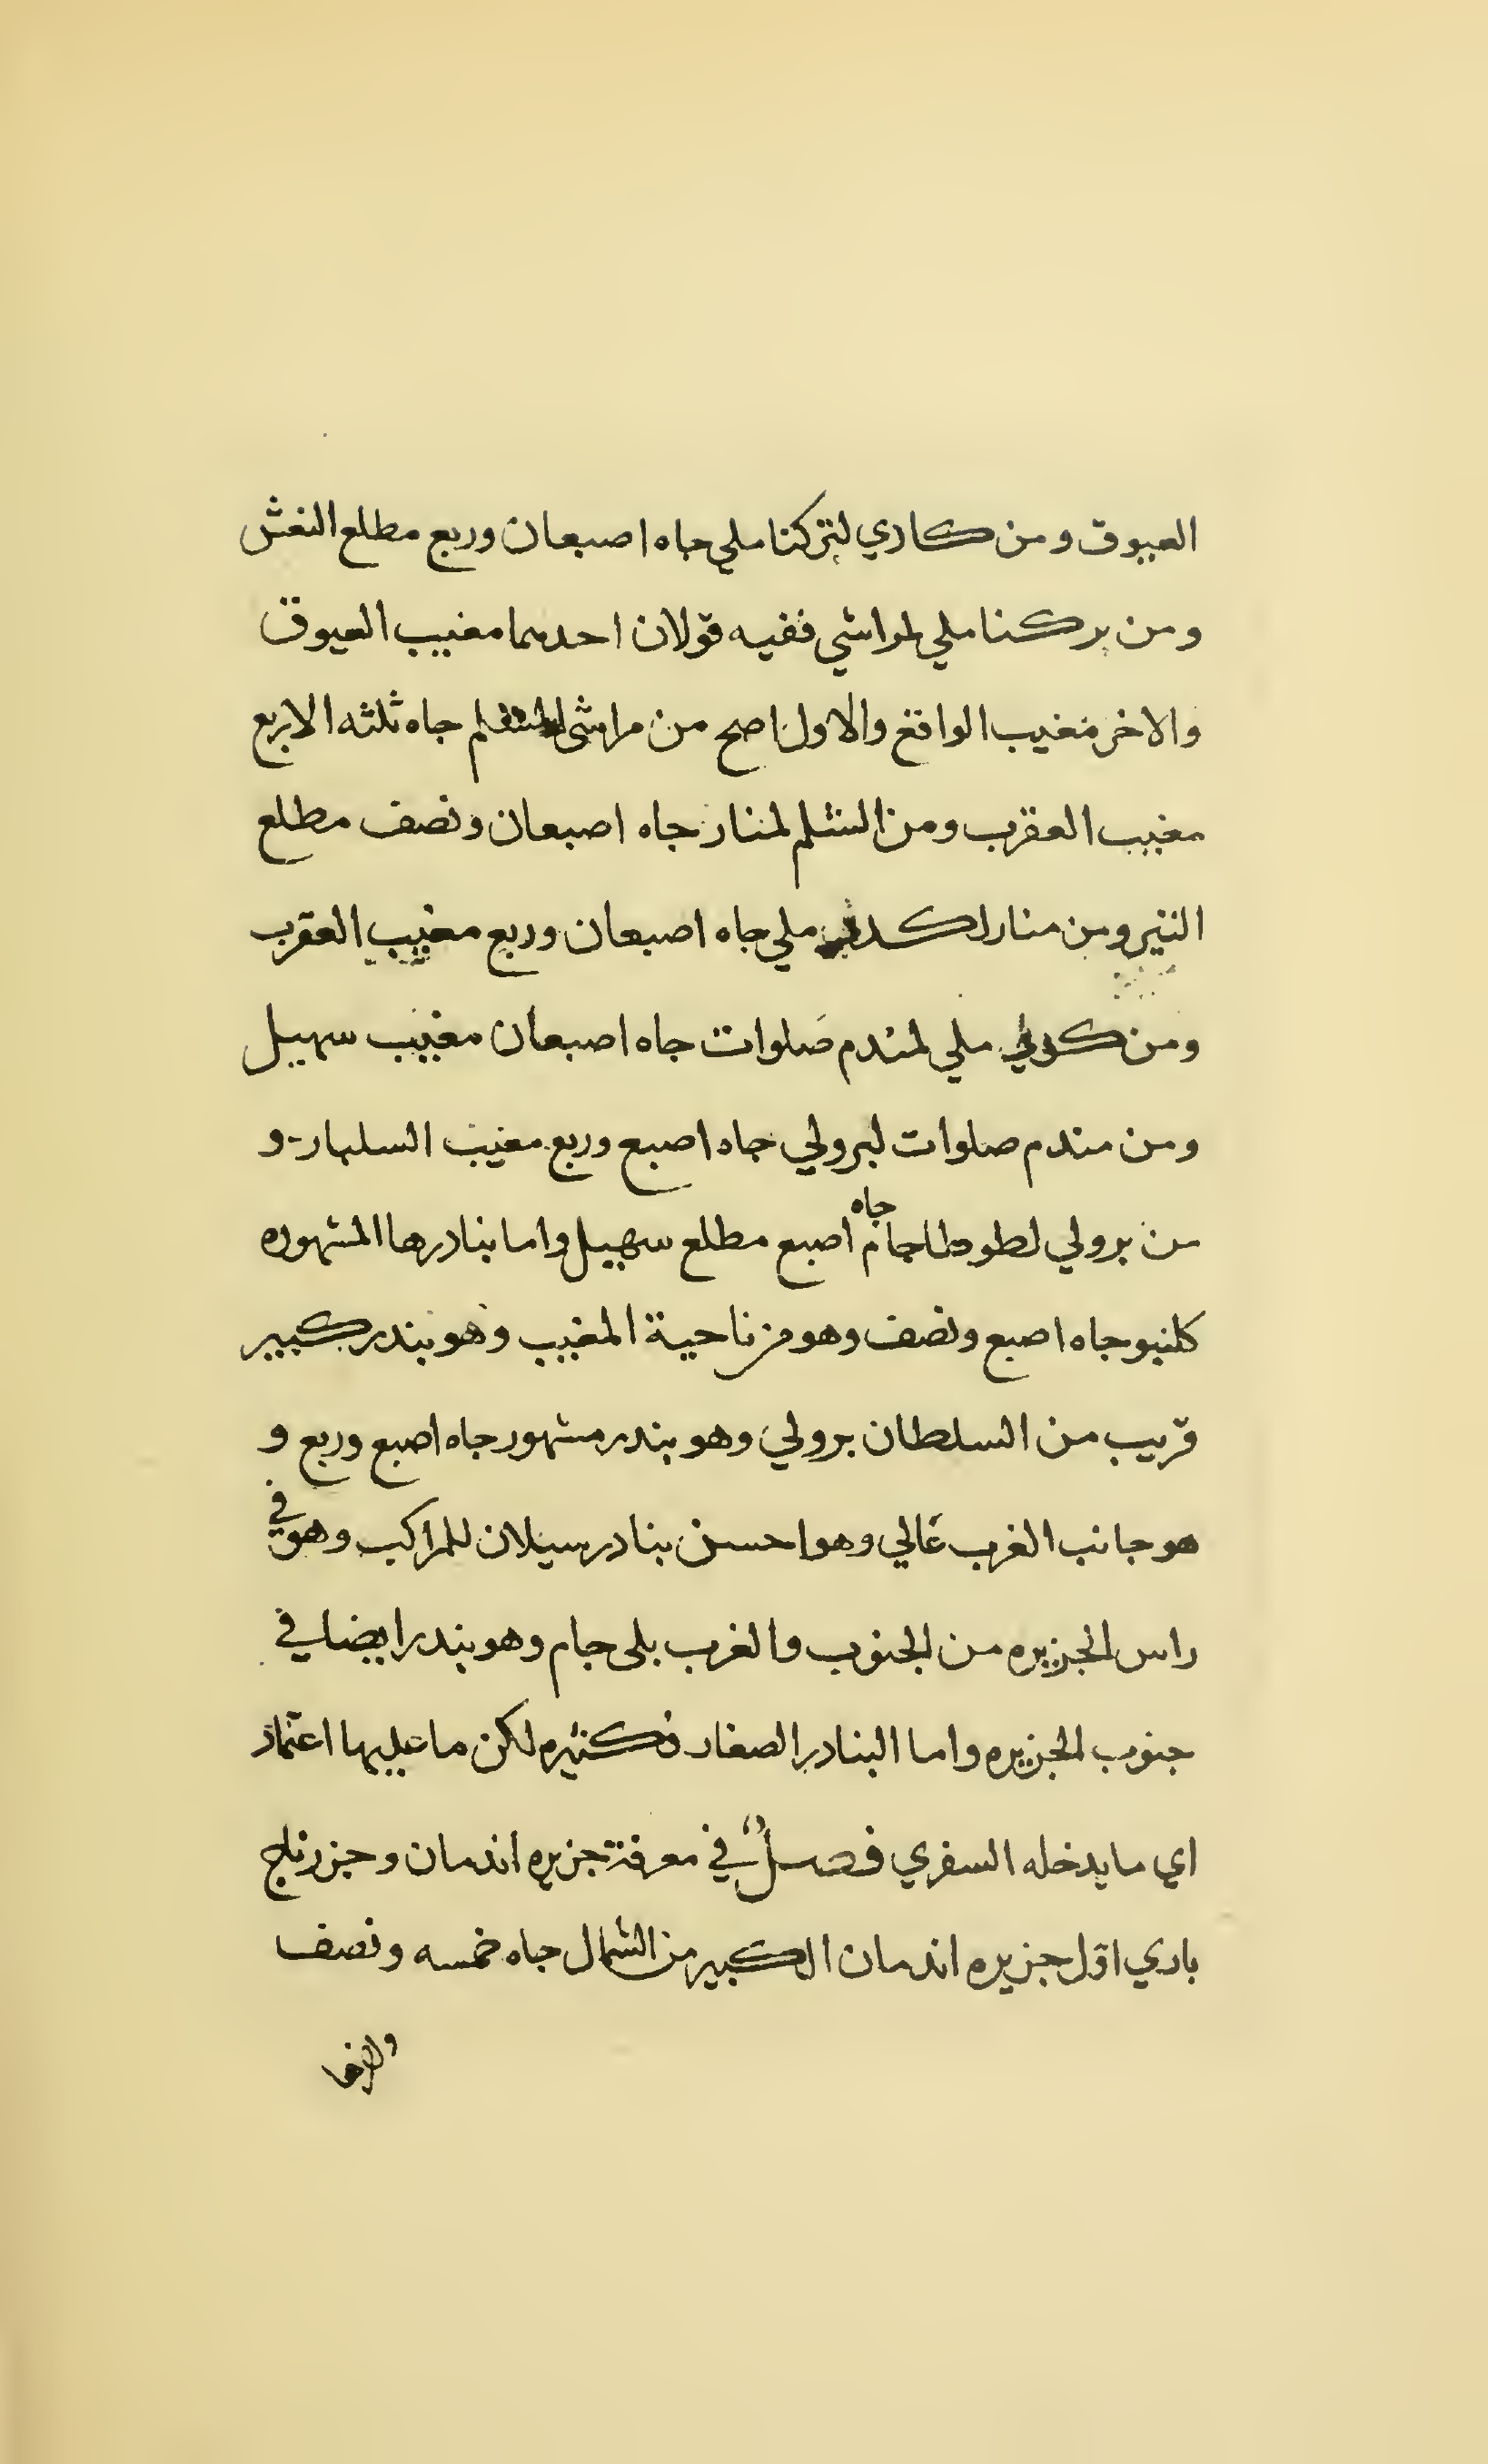 العيوق ومن كادي لتركنا ملي جاه اصبعان وربع مطلع النعش
ومن بركنا ملي لمراشي ففيه قولان احدهما مغيب العيوق
والاخر مغيب الواقع والاول اصح من مراشي جاه ثلثه الا ربع
مغيب العقرب ومن الشلم لمنار جاه اصبعان ونصف مطلع
النير ومن منار ملي جاه اصبعان وربع مغيب العقرب
ومن ملي لمندم صلوات جاه اصبعان مغيب سهيل
ومن مندم صلوات لبرولي جاه اصبع وربع مغيب السلبار و
من برولي لطوطاجام جاه اصبع مطلع سهيل واما بنادرها المشهوره
كلنبو جاه اصبع ونصف وهو من ناحية المغيب وهو بندر كبير
قريب من السلطان برولي وهو بندر مشهور جاه اصبع وربع و
هو جانب الغرب غالي وهو احسن بنادر سيلان للمراكب وهو في
راس الجزيره من الجنوب والغرب بلى جام وهو بندر ايضا في
جنوب الجزيره واما البنادر الصغار فكثيره لكن ما عليها اعتماد
اي ما يدخله السفري فصل في معرفة جزيره اندمان وجزر ناج
باري اول جزيره اندمان الكبير من الشمال جاه خمسه ونصف